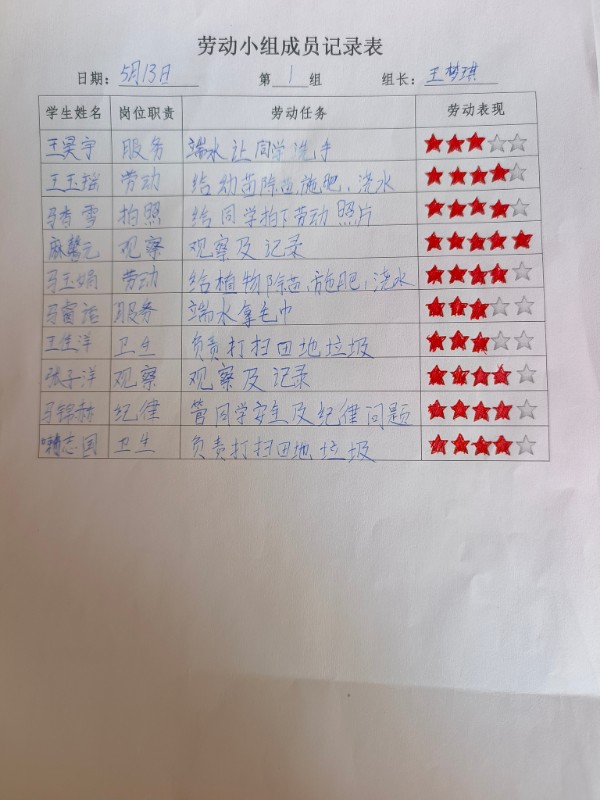 劳动小组成员记录表
日期：5月13日 第1组 组长：王梦琪
学生姓名 岗位职责 劳动任务 劳动表现
王昊宇 服务 端水让同学洗手
王玉瑶 劳动 给幼苗除苗，施肥，浇水
马香雪 拍照 给同学拍下劳动照片
麻馨元 观察 观察及记录
马玉娟 劳动 给植物除苗，施肥，浇水
马 服务 端水拿毛巾
王佳洋 卫生 负责打扫田地垃圾
张子洋 观察 观察及记录
马锦赫 纪律 管同学安全及纪律问题
志国 卫生 负责打扫田地垃圾